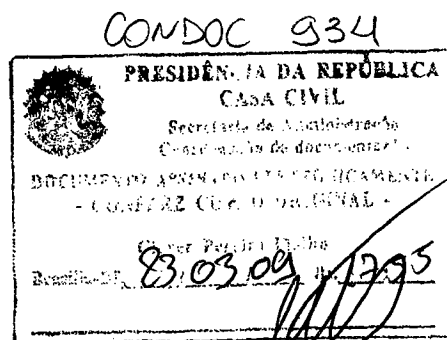 CONDOC 934
PRESIDÊNCIA DA REPÚBLICA
CASA CIVIL
Secretaria de Administração
Coordenação de documentação
DOCUMENTO ASSINADO ELETRONICAMENTE
- CONFERE COM O ORIGINAL -
Brasília-DF, 23.03.09